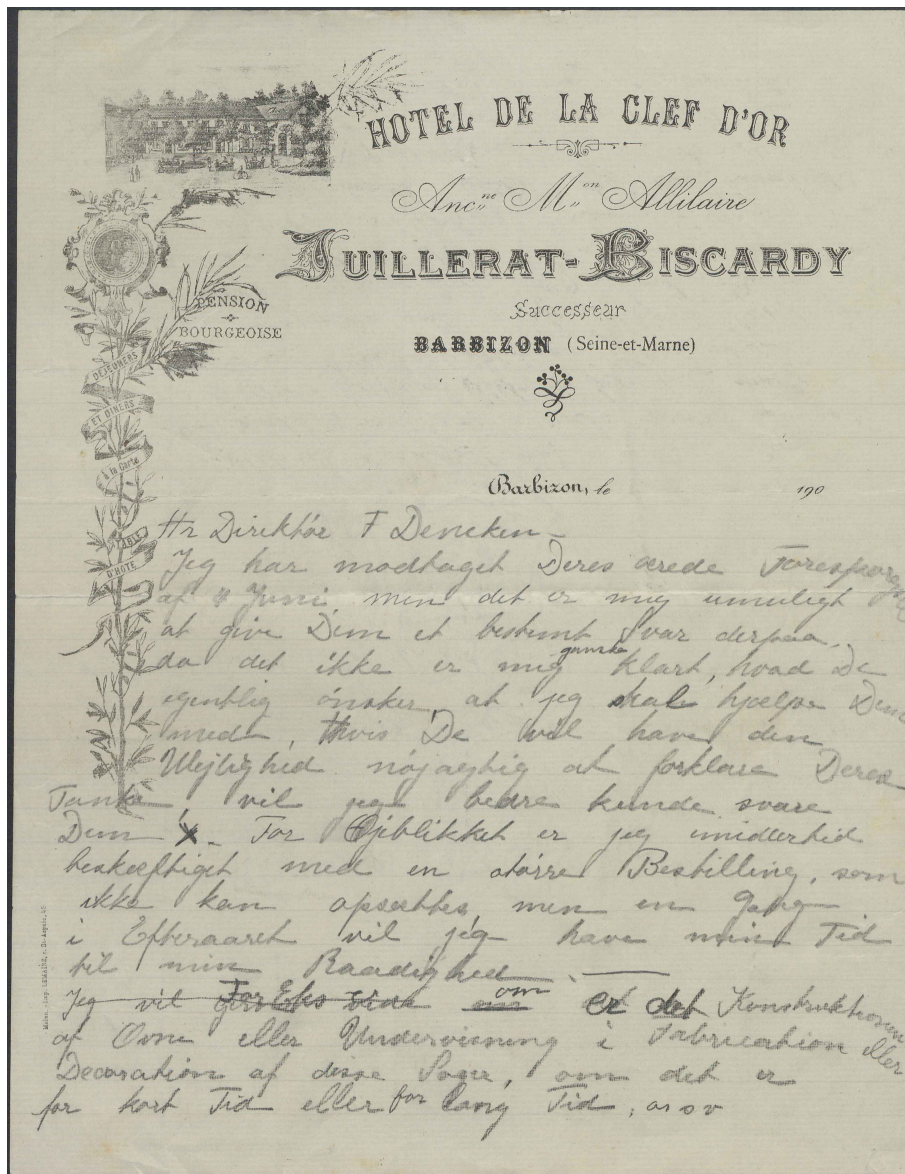 HOTEL DE LA CLEF D'OR
Anc.ne M.on Allilaire
JUILLERAT-BISCARDY
Successeur
BARBIZON (Seine-et-Marne)
PENSION
BOURGEOISE
DÉJEUNERS
ET DINERS
À la Carte
TABLE
D'HÔTE
Barbizon, le 190
Hr Direktör F Deneken
Jeg har modtaget Deres ærede Forespørgsel
af 4 Juni, men det er mig umuligt
at give Dem et bestemt Svar derpaa
da det ikke er mig ganske klart, hvad De
egentlig önsker, at jeg skal hjælpe Dem
med, Hvis De vil have den
Ulejlighed nöjagtig at forklare Deres
Tanke, vil jeg bedre kunde svare
Dem X. For Öjblikket er jeg imidlertid
beskæftiget med en större Bestilling, som
ikke kan opsættes, men en Gang
i Efteraaret vil jeg have min Tid
til min Raadighed.
Jeg vil For Eks om er det Konstruktionen
af Ovne eller Undervisning i Fabrication eller
Decoration af disse Sager, om det er
for kort Tid eller for lang Tid, osv